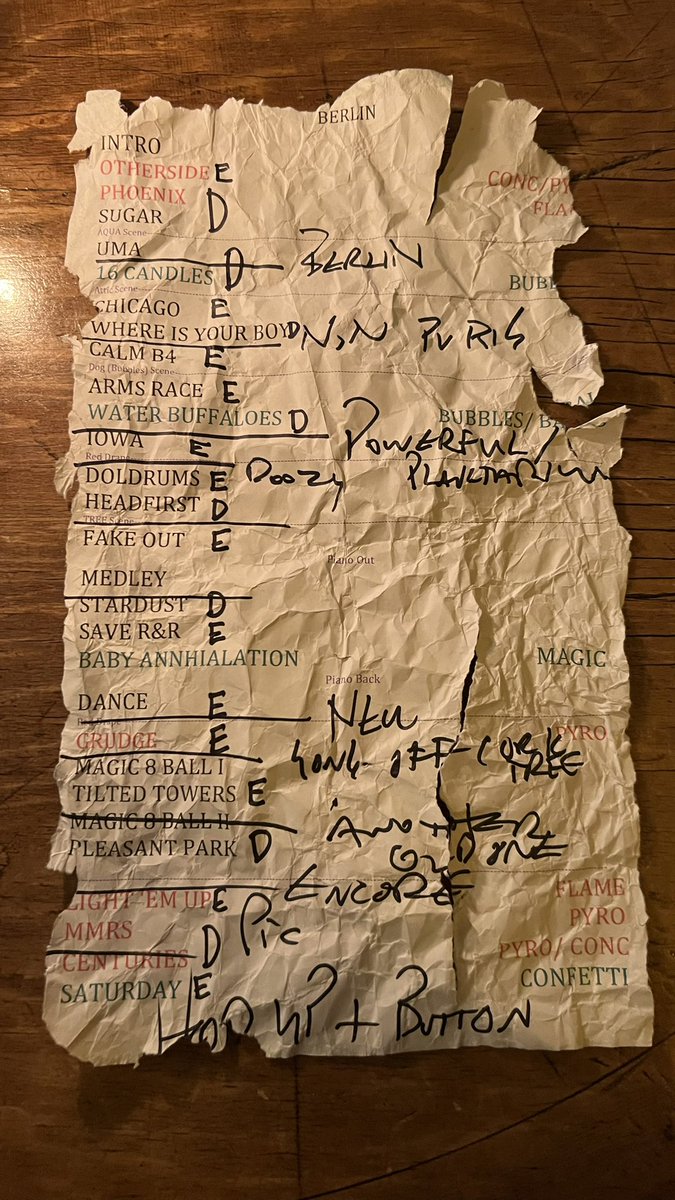 BERLIN
INTRO
OTHERSIDE E
CONC/PY
PHOENIX
FLA
SUGAR D
AQUA Scene
UMA
16 CANDLES D BERLIN
BUBB
Attic Scene
CHICAGO E
WHERE IS YOUR BOY D
CALM B4 E
Dog (Bubbles) Scene
ARMS RACE E
WATER BUFFALOES D
BUBBLES/ BA
IOWA E POWERFUL/
Red Drape
DOLDRUMS E DOOZY
HEADFIRST D
TREE Scene
FAKE OUT E
Piano Out
MEDLEY
STARDUST D
SAVE R&R E
BABY ANNHIALATION
MAGIC
Piano Back
DANCE E NEW
GRUDGE E
PYRO
MAGIC 8 BALL I SONG-OFF-CORK TREE
TILTED TOWERS E
MAGIC 8 BALL II ANOTHER
PLEASANT PARK D
ENCORE
LIGHT 'EM UP E
FLAME
MMRS PIC
PYRO
CENTURIES D
PYRO/ CONC
SATURDAY E
CONFETTI
UP + BUTTON